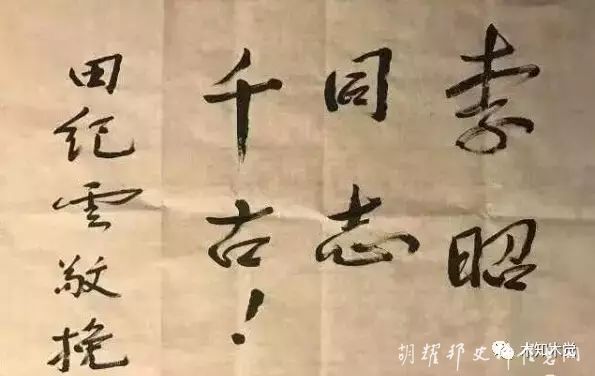 李昭
同志
千古！
田纪云敬挽
胡耀邦史料信息网
木知木觉